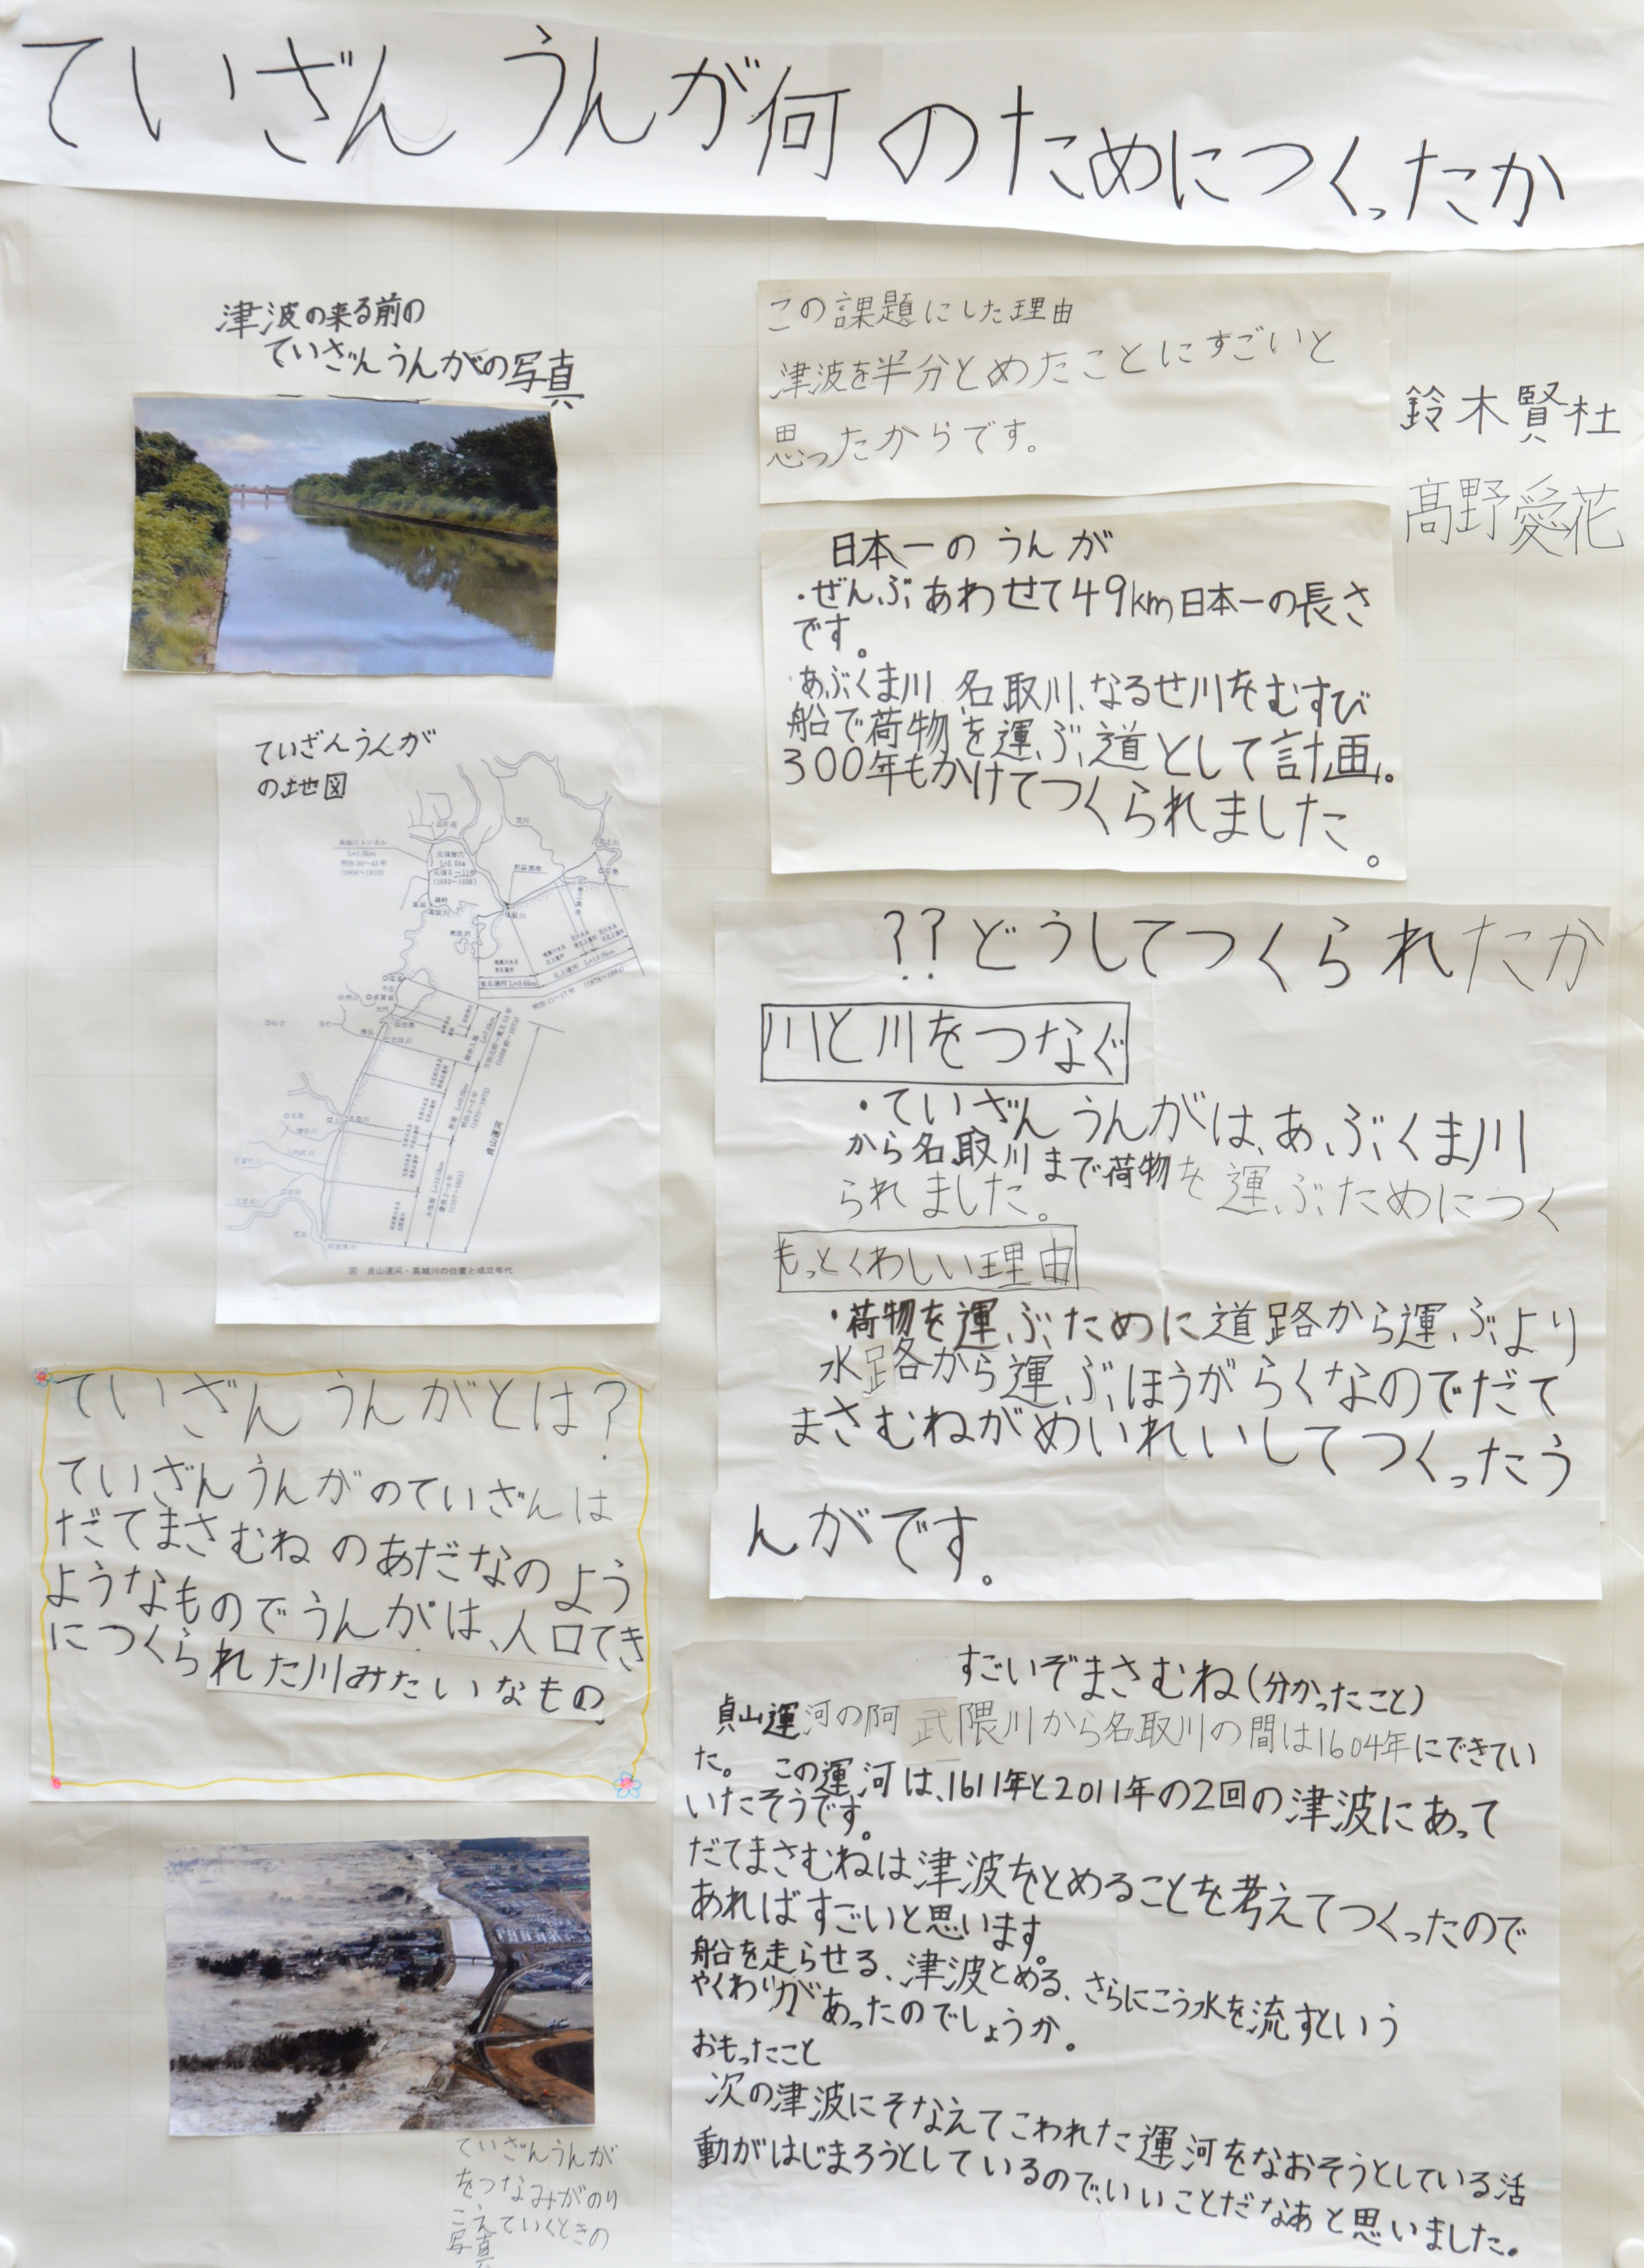 ていざんうんが何のためにつくったか
津波の来る前の
ていざんうんがの写真
この課題にした理由
津波を半分とめたことにすごいと
思ったからです。
鈴木賢杜
髙野愛花
日本一のうんが
・ぜんぶあわせて49km日本一の長さ
です。
・あぶくま川、名取川、なるせ川をむすび
船で荷物を運ぶ道として計画。
300年もかけてつくられました。
ていざんうんが
の地図
高城川トンネル
貞山運河
図 貞山運河・高城川の位置と成立年代
??どうしてつくられたか
川と川をつなぐ
・ていざんうんがは、あぶくま川
から名取川まで荷物を運ぶためにつく
られました。
もっとくわしい理由
・荷物を運ぶために道路から運ぶより
水路から運ぶほうがらくなのでだて
まさむねがめいれいしてつくったう
んがです。
ていざんうんがとは?
ていざんうんがのていざんは
だてまさむねのあだなのよう
ようなものでうんがは、人口てき
につくられた川みたいなもの
すごいぞまさむね(分かったこと)
貞山運河の阿武隈川から名取川の間は1604年にできてい
た。この運河は、1611年と2011年の2回の津波にあって
いたそうです。
だてまさむねは津波をとめることを考えてつくったので
あればすごいと思います。
船を走らせる、津波とめる、さらにこう水を流すという
やくわりがあったのでしょうか。
おもったこと
次の津波にそなえてこわれた運河をなおそうとしている活
動がはじまろうとしているので、いいことだなあと思いました。
ていざんうんが
をつなみがのり
こえていくときの
写真